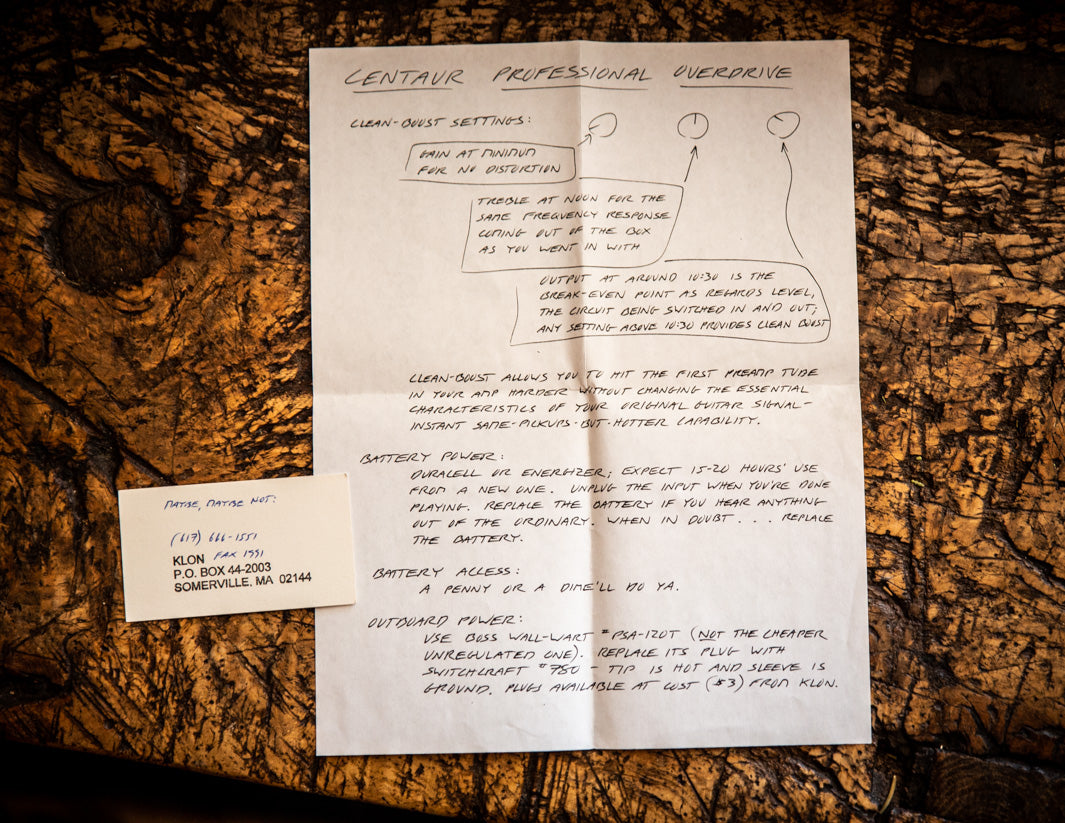 CENTAUR PROFESSIONAL OVERDRIVE
CLEAN-BOOST SETTINGS:
GAIN AT MINIMUM
FOR NO DISTORTION
TREBLE AT NOON FOR THE
SAME FREQUENCY RESPONSE
COMING OUT OF THE BOX
AS YOU WENT IN WITH
OUTPUT AT AROUND 10:30 IS THE
BREAK-EVEN POINT AS REGARDS LEVEL,
THE CIRCUIT BEING SWITCHED IN AND OUT;
ANY SETTING ABOVE 10:30 PROVIDES CLEAN BOOST
CLEAN-BOOST ALLOWS YOU TO HIT THE FIRST PREAMP TUBE
IN YOUR AMP HARDER WITHOUT CHANGING THE ESSENTIAL
CHARACTERISTICS OF YOUR ORIGINAL GUITAR SIGNAL-
INSTANT SAME-PICKUPS-BUT-HOTTER CAPABILITY.
BATTERY POWER:
DURACELL OR ENERGIZER; EXPECT 15-20 HOURS' USE
FROM A NEW ONE. UNPLUG THE INPUT WHEN YOU'RE DONE
PLAYING. REPLACE THE BATTERY IF YOU HEAR ANYTHING
OUT OF THE ORDINARY. WHEN IN DOUBT . . . REPLACE
THE BATTERY.
BATTERY ACCESS:
A PENNY OR A DIME'LL DO YA.
OUTBOARD POWER:
USE BOSS WALL-WART #PSA-120T (NOT THE CHEAPER
UNREGULATED ONE). REPLACE ITS PLUG WITH
SWITCHCRAFT #780 - TIP IS HOT AND SLEEVE IS
GROUND. PLUGS AVAILABLE AT COST ($3) FROM KLON.
MAYBE, MAYBE NOT:
(617) 666-1551
KLON FAX 1991
P.O. BOX 44-2003
SOMERVILLE, MA 02144